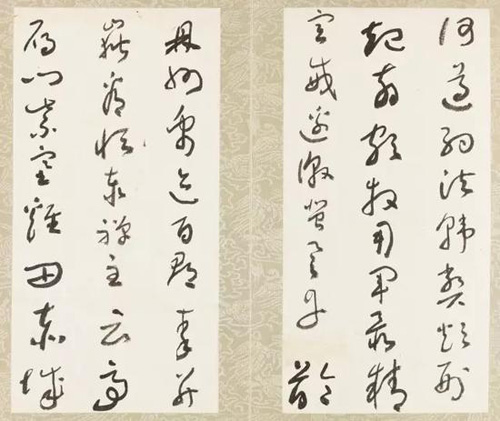 何遵約法韓弊煩刑
起翦頗牧用軍最精
宣威
州禹迹百郡秦并
嶽宗恒泰禪主云亭
雁門紫塞雞田赤城